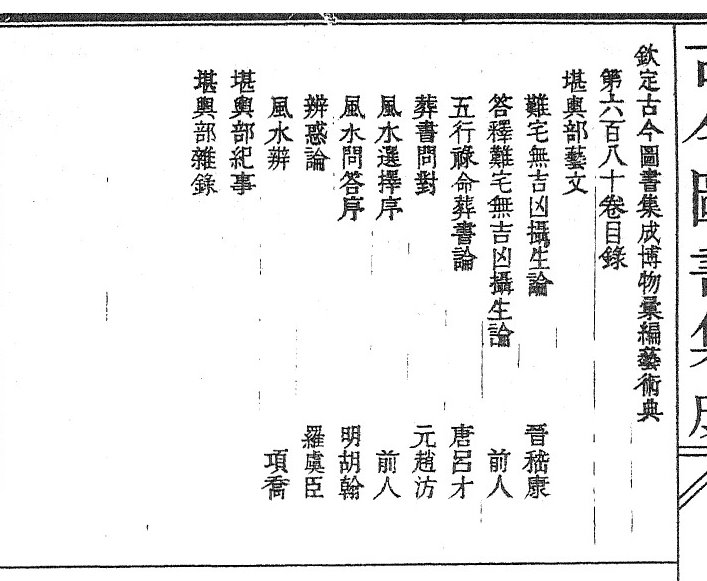 古今圖書集成
欽定古今圖書集成博物彙編藝術典
第六百八十卷目錄
堪輿部藝文
難宅無吉凶攝生論 晉嵇康
答釋難宅無吉凶攝生論 前人
五行祿命葬書論 唐呂才
葬書問對 元趙汸
風水選擇序 前人
風水問答序 明胡翰
辨惑論 羅虞臣
風水辨 項喬
堪輿部紀事
堪輿部雜錄